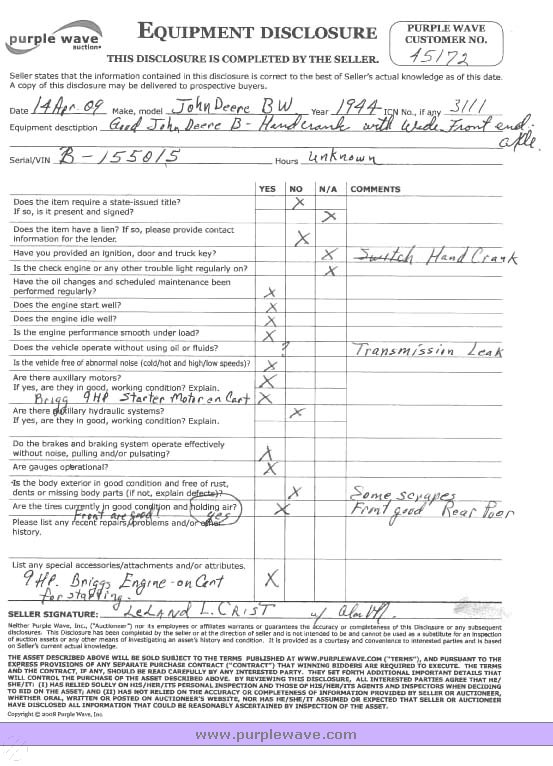 purple wave
auction
EQUIPMENT DISCLOSURE
THIS DISCLOSURE IS COMPLETED BY THE SELLER.
PURPLE WAVE
CUSTOMER NO.
45172
Seller states that the information contained in this disclosure is correct to the best of Seller's actual knowledge as of this date.
A copy of this disclosure may be delivered to prospective buyers.
Date 14 Apr. 09 Make, model John Deere BW Year 1944 ICN No., if any 3111
Equipment desctiption Good John Deere B - Handcrank with Wide Front end.
axle.
Serial/VIN B-155015 Hours Unknown
YES NO N/A COMMENTS
Does the item require a state-issued title? X
If so, is it present and signed? X
Does the item have a lien? If so, please provide contact
information for the lender. X
Have you provided an ignition, door and truck key? X Switch Hand Crank
Is the check engine or any other trouble light regularly on? X
Have the oil changes and scheduled maintenance been
performed regularly? X
Does the engine start well? X
Does the engine idle well? X
Is the engine performance smooth under load? X
Does the vehicle operate without using oil or fluids? ? Transmission Leak
Is the vehicle free of abnormal noise (cold/hot and high/low speeds)? X
Are there auxiliary motors? X
If yes, are they in good, working condition? Explain.
Brigg 9HP Starter Motor on Cart X
Are there auxiliary hydraulic systems? X
If yes, are they in good, working condition? Explain.
Do the brakes and braking system operate effectively
without noise, pulling and/or pulsating? X
Are gauges operational? X
Is the body exterior in good condition and free of rust,
dents or missing body parts (if not, explain defects)? X Some scrapes
Are the tires currently in good condition and holding air? X Front good Rear Poor
Front are good! yes
Please list any recent repairs/problems and/or other
history.
List any special accessories/attachments and/or attributes.
9HP. Briggs Engine - on Cart X
for starting.
SELLER SIGNATURE: LELAND L. CRIST
Neither Purple Wave, Inc., ("Auctioneer") nor its employees or affiliates warrants or guarantees the accuracy or completeness of this Disclosure or any subsequent
disclosures. This Disclosure has been completed by the seller or at the direction of seller and is not intended to be and cannot be used as a substitute for an inspection
of auction assets or any other means of investigating an asset's history and condition. It is provided as a courtesy and convenience to interested parties and is based
on Seller's current actual knowledge.
THE ASSET DESCRIBED ABOVE WILL BE SOLD SUBJECT TO THE TERMS PUBLISHED AT WWW.PURPLEWAVE.COM ("TERMS"), AND PURSUANT TO THE
EXPRESS PROVISIONS OF ANY SEPARATE PURCHASE CONTRACT ("CONTRACT") THAT WINNING BIDDERS ARE REQUIRED TO EXECUTE. THE TERMS
AND THE CONTRACT, IF ANY, SHOULD BE READ CAREFULLY BY ANY INTERESTED PARTY. THEY SET FORTH ADDITIONAL IMPORTANT DETAILS THAT
WILL CONTROL THE PURCHASE OF THE ASSET DESCRIBED ABOVE. BY REVIEWING THIS DISCLOSURE, ALL INTERESTED PARTIES AGREE THAT HE/
SHE/IT: (I) HAS RELIED SOLELY ON HIS/HER/ITS PERSONAL INSPECTION AND THOSE OF HIS/HER/ITS AGENTS AND INSPECTORS WHEN DECIDING
TO BID ON THE ASSET; AND (II) HAS NOT RELIED ON THE ACCURACY OR COMPLETENESS OF INFORMATION PROVIDED BY SELLER OR AUCTIONEER,
WHETHER ORAL, WRITTEN OR POSTED ON AUCTIONEER'S WEBSITE, NOR HAS HE/SHE/IT ASSUMED OR EXPECTED THAT SELLER OR AUCTIONEER
HAVE DISCLOSED ALL INFORMATION THAT COULD BE REASONABLY ASCERTAINED BY INSPECTION OF THE ASSET.
Copyright © 2008 Purple Wave, Inc
www.purplewave.com